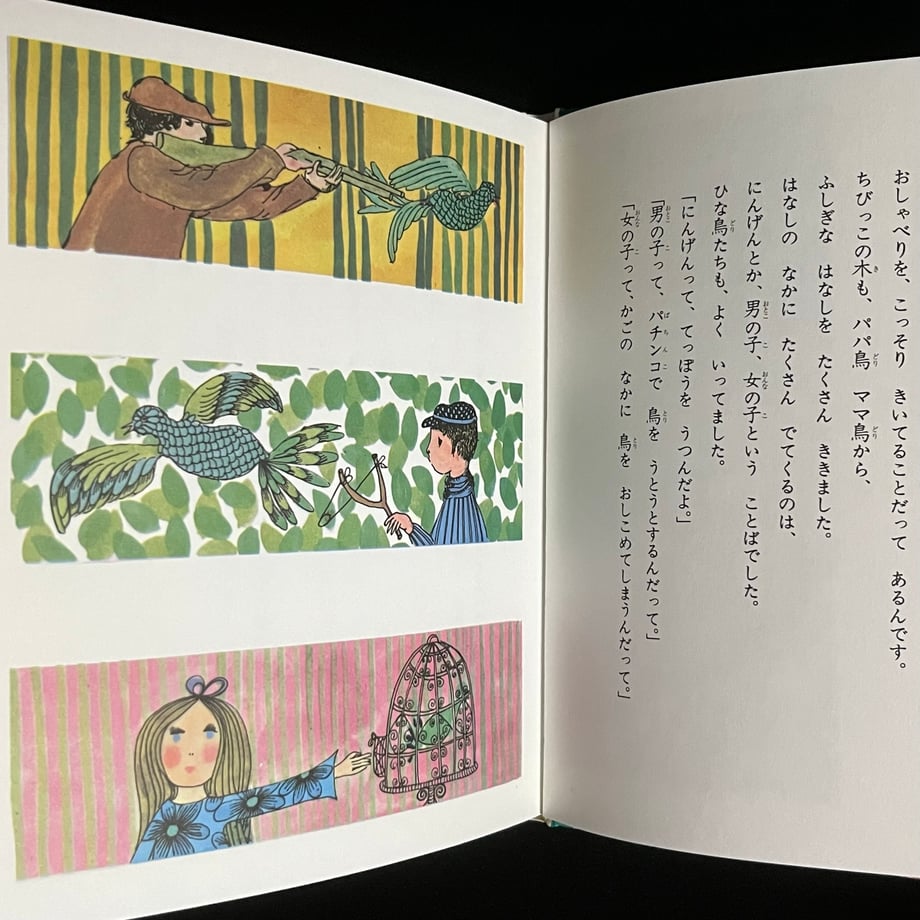 おしゃべりを、こっそり きいてることだって あるんです。
ちびっこの木も、パパ鳥 ママ鳥から、
ふしぎな はなしを たくさん ききました。
はなしの なかに たくさん でてくるのは、
にんげんとか、男の子、女の子という ことばでした。
ひな鳥たちも、よく いってました。
「にんげんって、てっぽうを うつんだよ。」
「男の子って、パチンコで 鳥を うとうとするんだって。」
「女の子って、かごの なかに 鳥を おしこめてしまうんだって。」